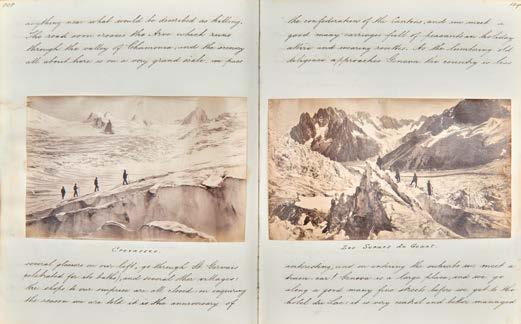 anything near what would be described as hilling.
The road soon crosses the Arve which runs
through the valley of Chamounix, and the scenery
all about here is on a very grand scale. we pass
Crevasses.
several glaciers on our left, go through St Gervais
celebrated for its baths, and several other villages:
the shops to our surprise are all closed, on inquiring
the reason we are told it is the anniversary of
the confederation of the Cantons, and we meet a
good many carriages full of peasants on holiday
attire and wearing rosettes. As the lumbering old
diligence approaches Geneva the country is less
Les Seracs du Geant.
interesting, and on entering the suburbs we meet a
tram car! Geneva is a large place, and we go
along a good many fine streets before we get to the
hotel du Lac: it is very central and better managed